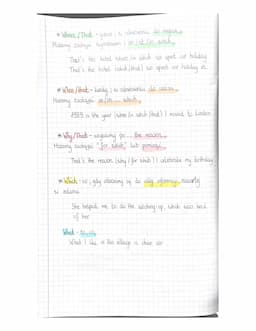 * Where/That - gdzie; w odniesieniu do miejsca
Możemy zastąpić wyrażeniami in/at/on which
That's the hotel where/in which we spent our holiday
That's the hotel (which/that) we spent our holiday at
* When/that - kiedy; w odniesieniu do czasu
Możemy zastąpić in/on which
1989 is the year (when/in which/that) I moved to London
* Why/That - wyjaśniamy the reason
Możemy zastąpić "for which" lub pominąć
That's the reason (why/for which) I celebrate my birthday
* Which - co; gdy odnosimy się do całej informacji zawartej
w zdaniu
She helped me to do the washing-up, which was kind
of her
What -
What I like in this village is clean air